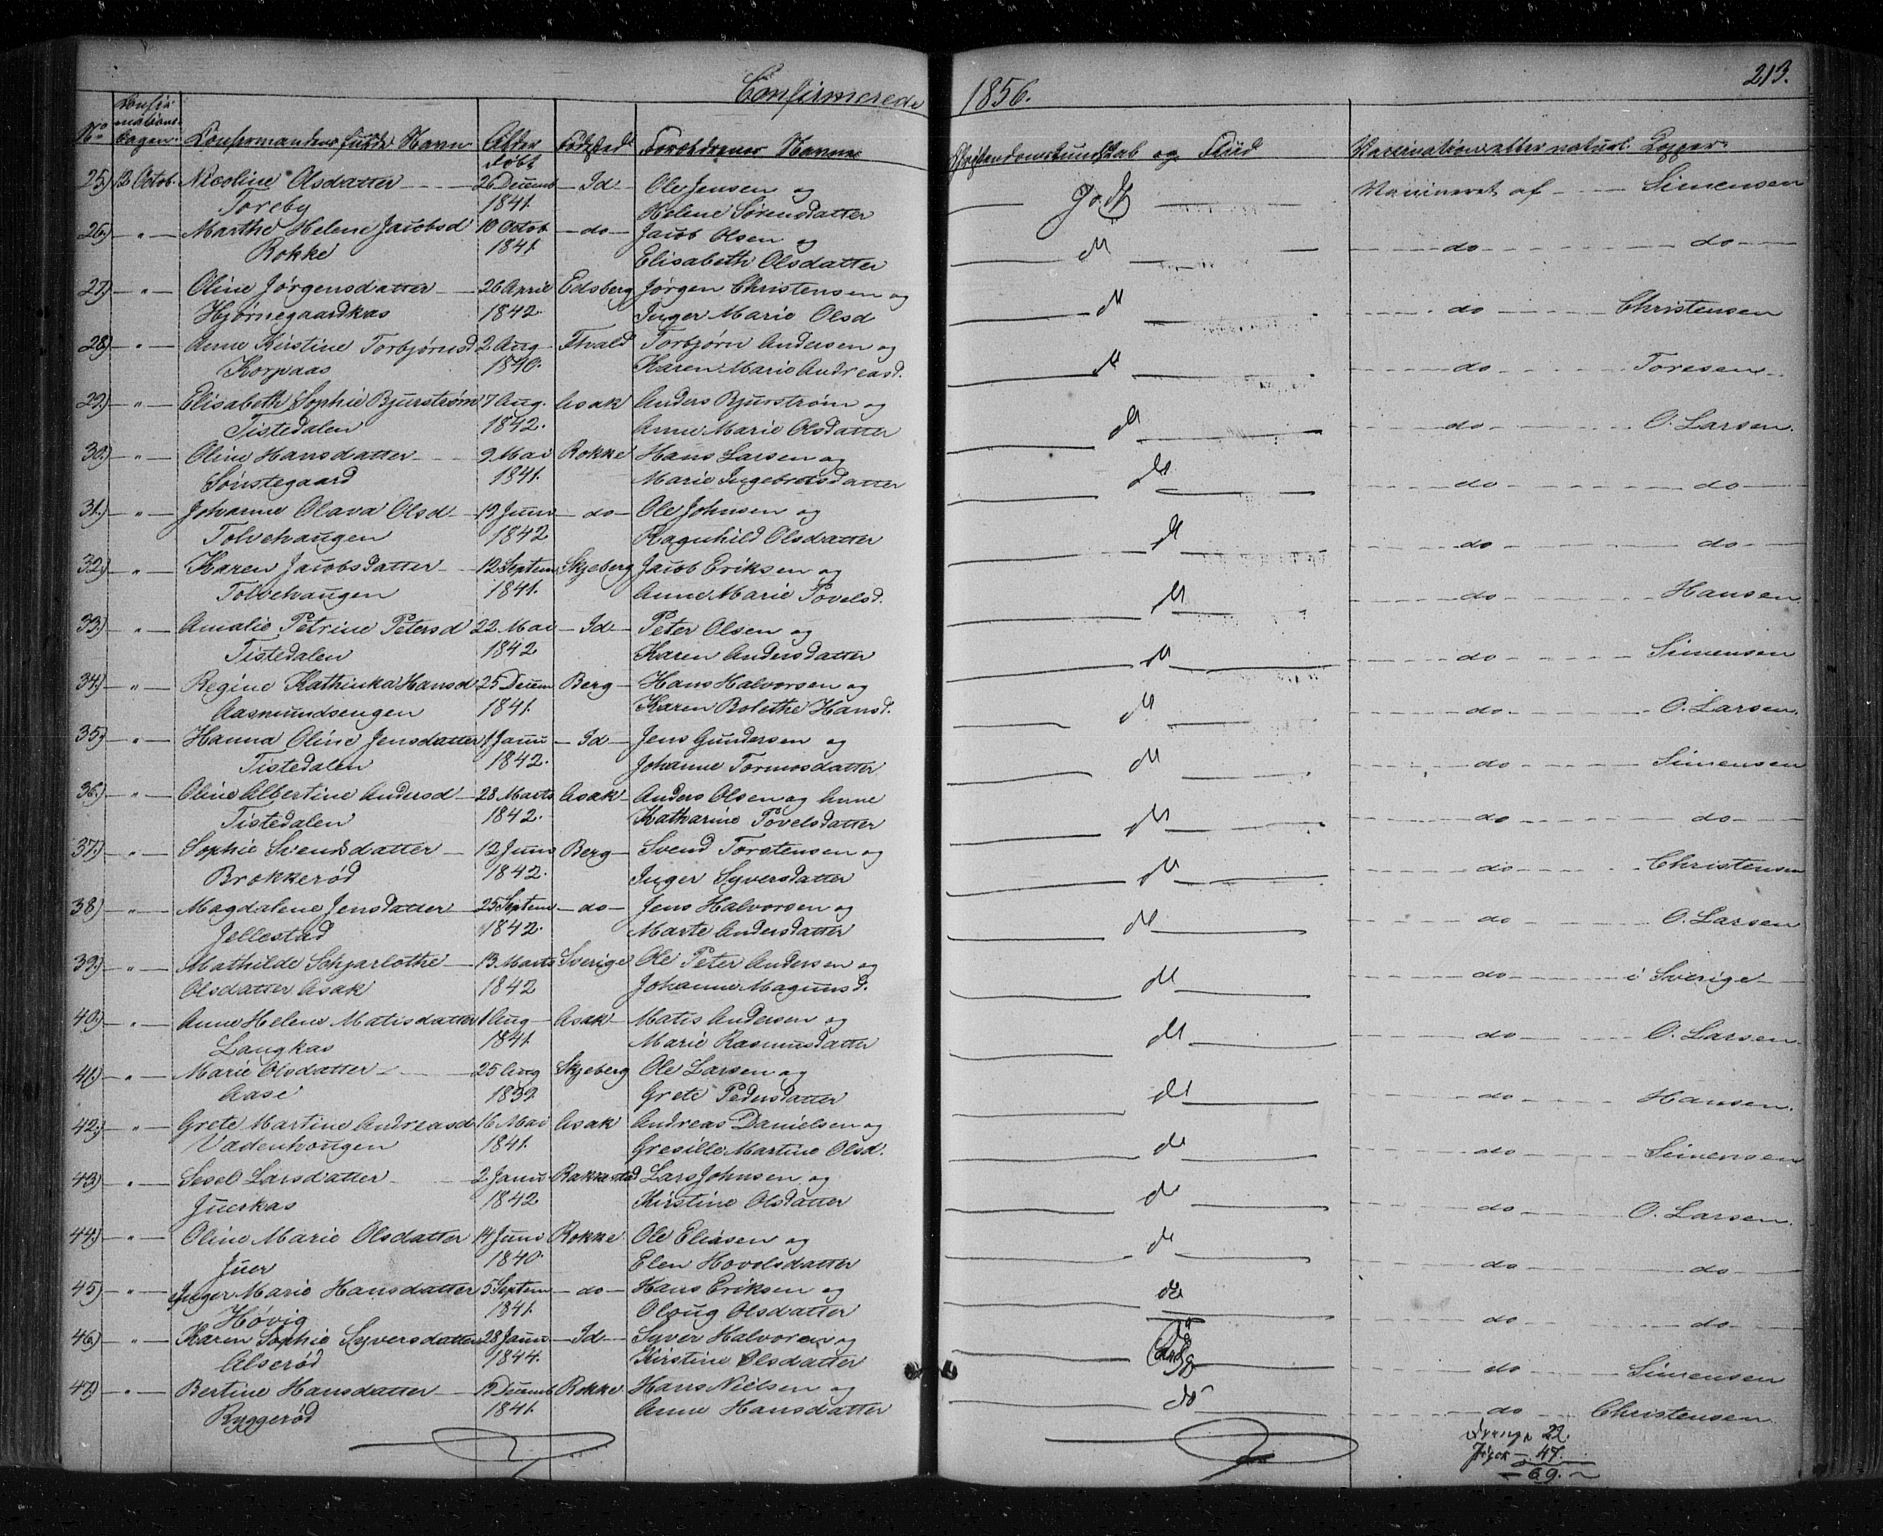 Confirmerede 1856. 213.
No Confirmationsdagen. Confirmandens fulde Navn Alder Født Fødested Forældrenes Navne Christendomskundskab og Flid Vaccination eller naturl. Kopper.
25) 12 Octob Nicoline Olsdatter 26 Decemb Id Ole Jensen og Godt Vaccineret af Simensen
Toreby 1841. Helene Sørensdatter
26) " Marthe Helene Jacobsd 10 Octob do Jacob Olsen og do do do
Rokke 1841. Elisabeth Olsdatter
27) " Oline Jørgensdatter 26 April Edsberg Jørgen Christensen og do do Christensen
Hjørnegaardkas 1842. Inger Marie Olsd
28) " Anne Kirstine Torbjørnsd 2 Aug Torbjørn Andersen og do do Toresen
Korpaas 1840. Karen Marie Andreasd.
29) " Elisabeth Sophie Bjurstrøm 7 Aug. Asak Anders Bjurstrøm og do do O. Larsen.
Tistedalen 1842. Anne Marie Olsdatter
30) " Oline Hansdatter 9 Mai Rokke Hans Larsen og do do do
Sønstegaard 1841. Marie Ingebretsdatter
31) " Johanne Olava Olsd 19 Juni do Ole Johnsen og do do do
Tolvehaugen 1842 Ragnhild Olsdatter
32) " Karen Jacobsdatter 12 Septem Skjeberg Jacob Eriksen og do do Hansen.
Tolvehaugen 1841. Anne Marie Povelsd.
33) " Amalie Petrine Petersd 22 Mai Id Peter Olsen og do do Simensen
Tistedalen 1842 Karen Andersdatter
34) " Regine Kathinka Hansd 25 Decem Berg Hans Halvorsen og do do O. Larsen.
Aasmundsengen 1841. Karen Bolethe Hansd.
35) " Hanna Oline Jensdatter 1 Janu Id Jens Gundersen og do do Simensen
Tistedalen 1842. Johanne Tormosdatter
36) " Oline Albertine Andersd 28 Marts Asak Anders Olsen og Anne do do do
Tistedalen 1842. Katharine Povelsdatter
37) " Sophie Svendsdatter 12 Juni Berg Svend Torstensen og do do Christensen
Brokkerød 1842. Inger Syversdatter
38) " Magdalene Jensdatter 25 Septem do Jens Halvorsen og do do O. Larsen
Jellestad 1842. Marte Andersdatter
39) " Mathilde Skjarlothe 13 Marts Sverige Ole Peter Andersen og do do i Sverige
Olsdatter Asak 1842 Johanne Magnusd.
40) " Anne Helene Matisdatter 1 Aug Asak Matis Andersen og do do O. Larsen
Langkas 1841. Marie Rasmusdatter
41) " Marie Olsdatter 25 Aug Skjeberg Ole Larsen og do do Hansen.
Aase 1839 Grete Pedersdatter
42) " Grete Martine Andreasd 16 Mai Asak Andreas Danielsen og do do Simensen
Vadenhougen 1841. Gresille Martine Olsd.
43) " Sesel Larsdatter 2 Janu Rakkestad Lars Johnsen og do do O. Larsen.
Juerkas 1842 Kirstine Olsdatter
44) " Oline Marie Olsdatter 14 Juni Rokke Ole Eliasen og do do do
Juer 1840. Elen Hovelsdatter
45) " Inger Marie Hansdatter 5 Septem do Hans Eriksen og do do do
Høvig 1841. Oloug Olsdatter
46) " Karen Sophie Syversdatter 28 Janu Id Syver Halvoren og do Simensen
Alserød 1844. Kirstine Olsdatter
47) " Bertine Hansdatter 19 Decemb Rokke Hans Nielsen og do do Christensen
Ryggerød 1841. Anne Hansdatter
Drenge 22.
Piger 47.
69.